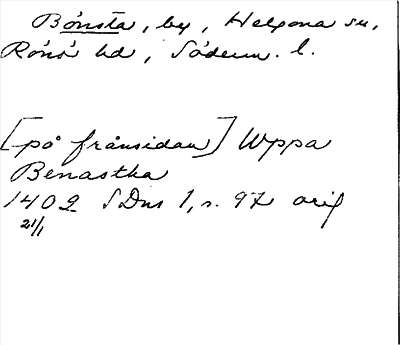 Bönsta, by, Helgona sn,
Rönö hd, Söderm. l.
[på frånsidan] Wppa
Benastha
1402 SDns 1, s. 97 orig
21/1